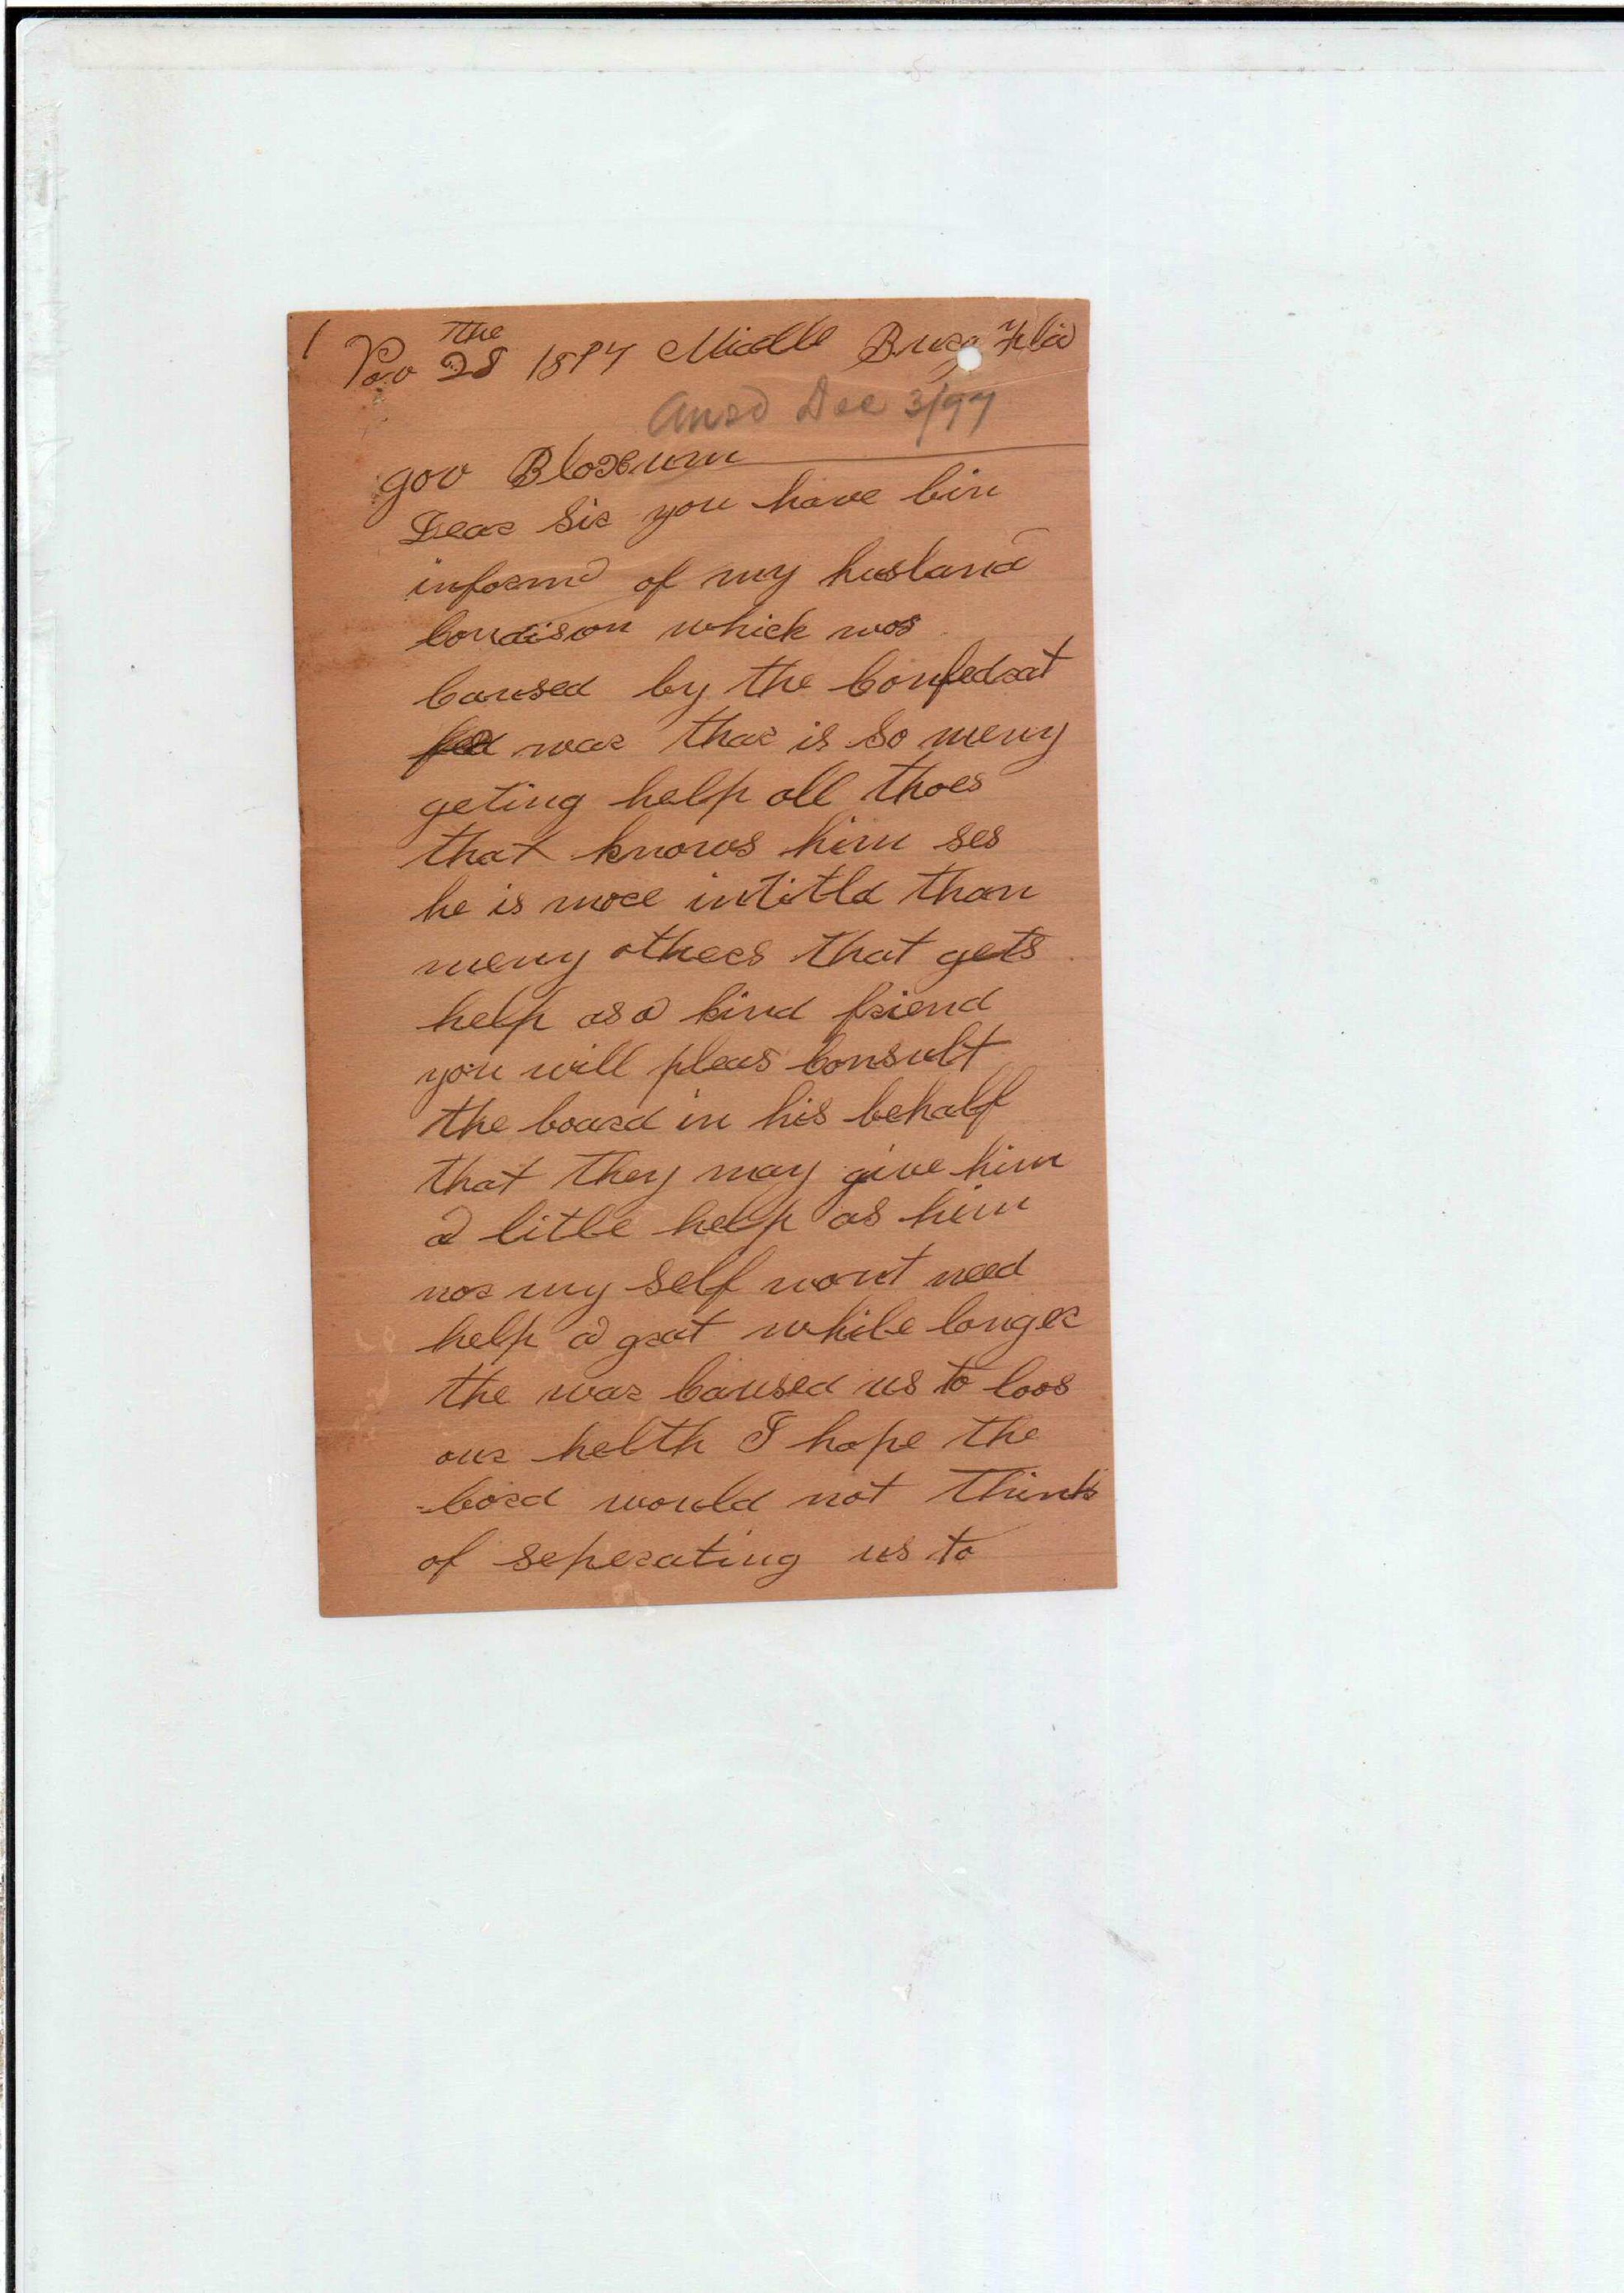 1
Nov the 28 1897 Middle Burg Fla
Ansd Dec 3/97
gov Bloxum
Dear Sir you have bin
informd of my husband
Condison which was
Caused by the Confedrat
war thar is so meny
geting help all thoes
that knows him ses
he is more intitld than
meny others that gets
help as a kind friend
you will pleas Consult
the board in his behalf
that they may give him
a litle help as him
nor my self wont need
help a grat while longer
the war Caused us to loos
our helth I hope the
bord would not think
of seperating us to